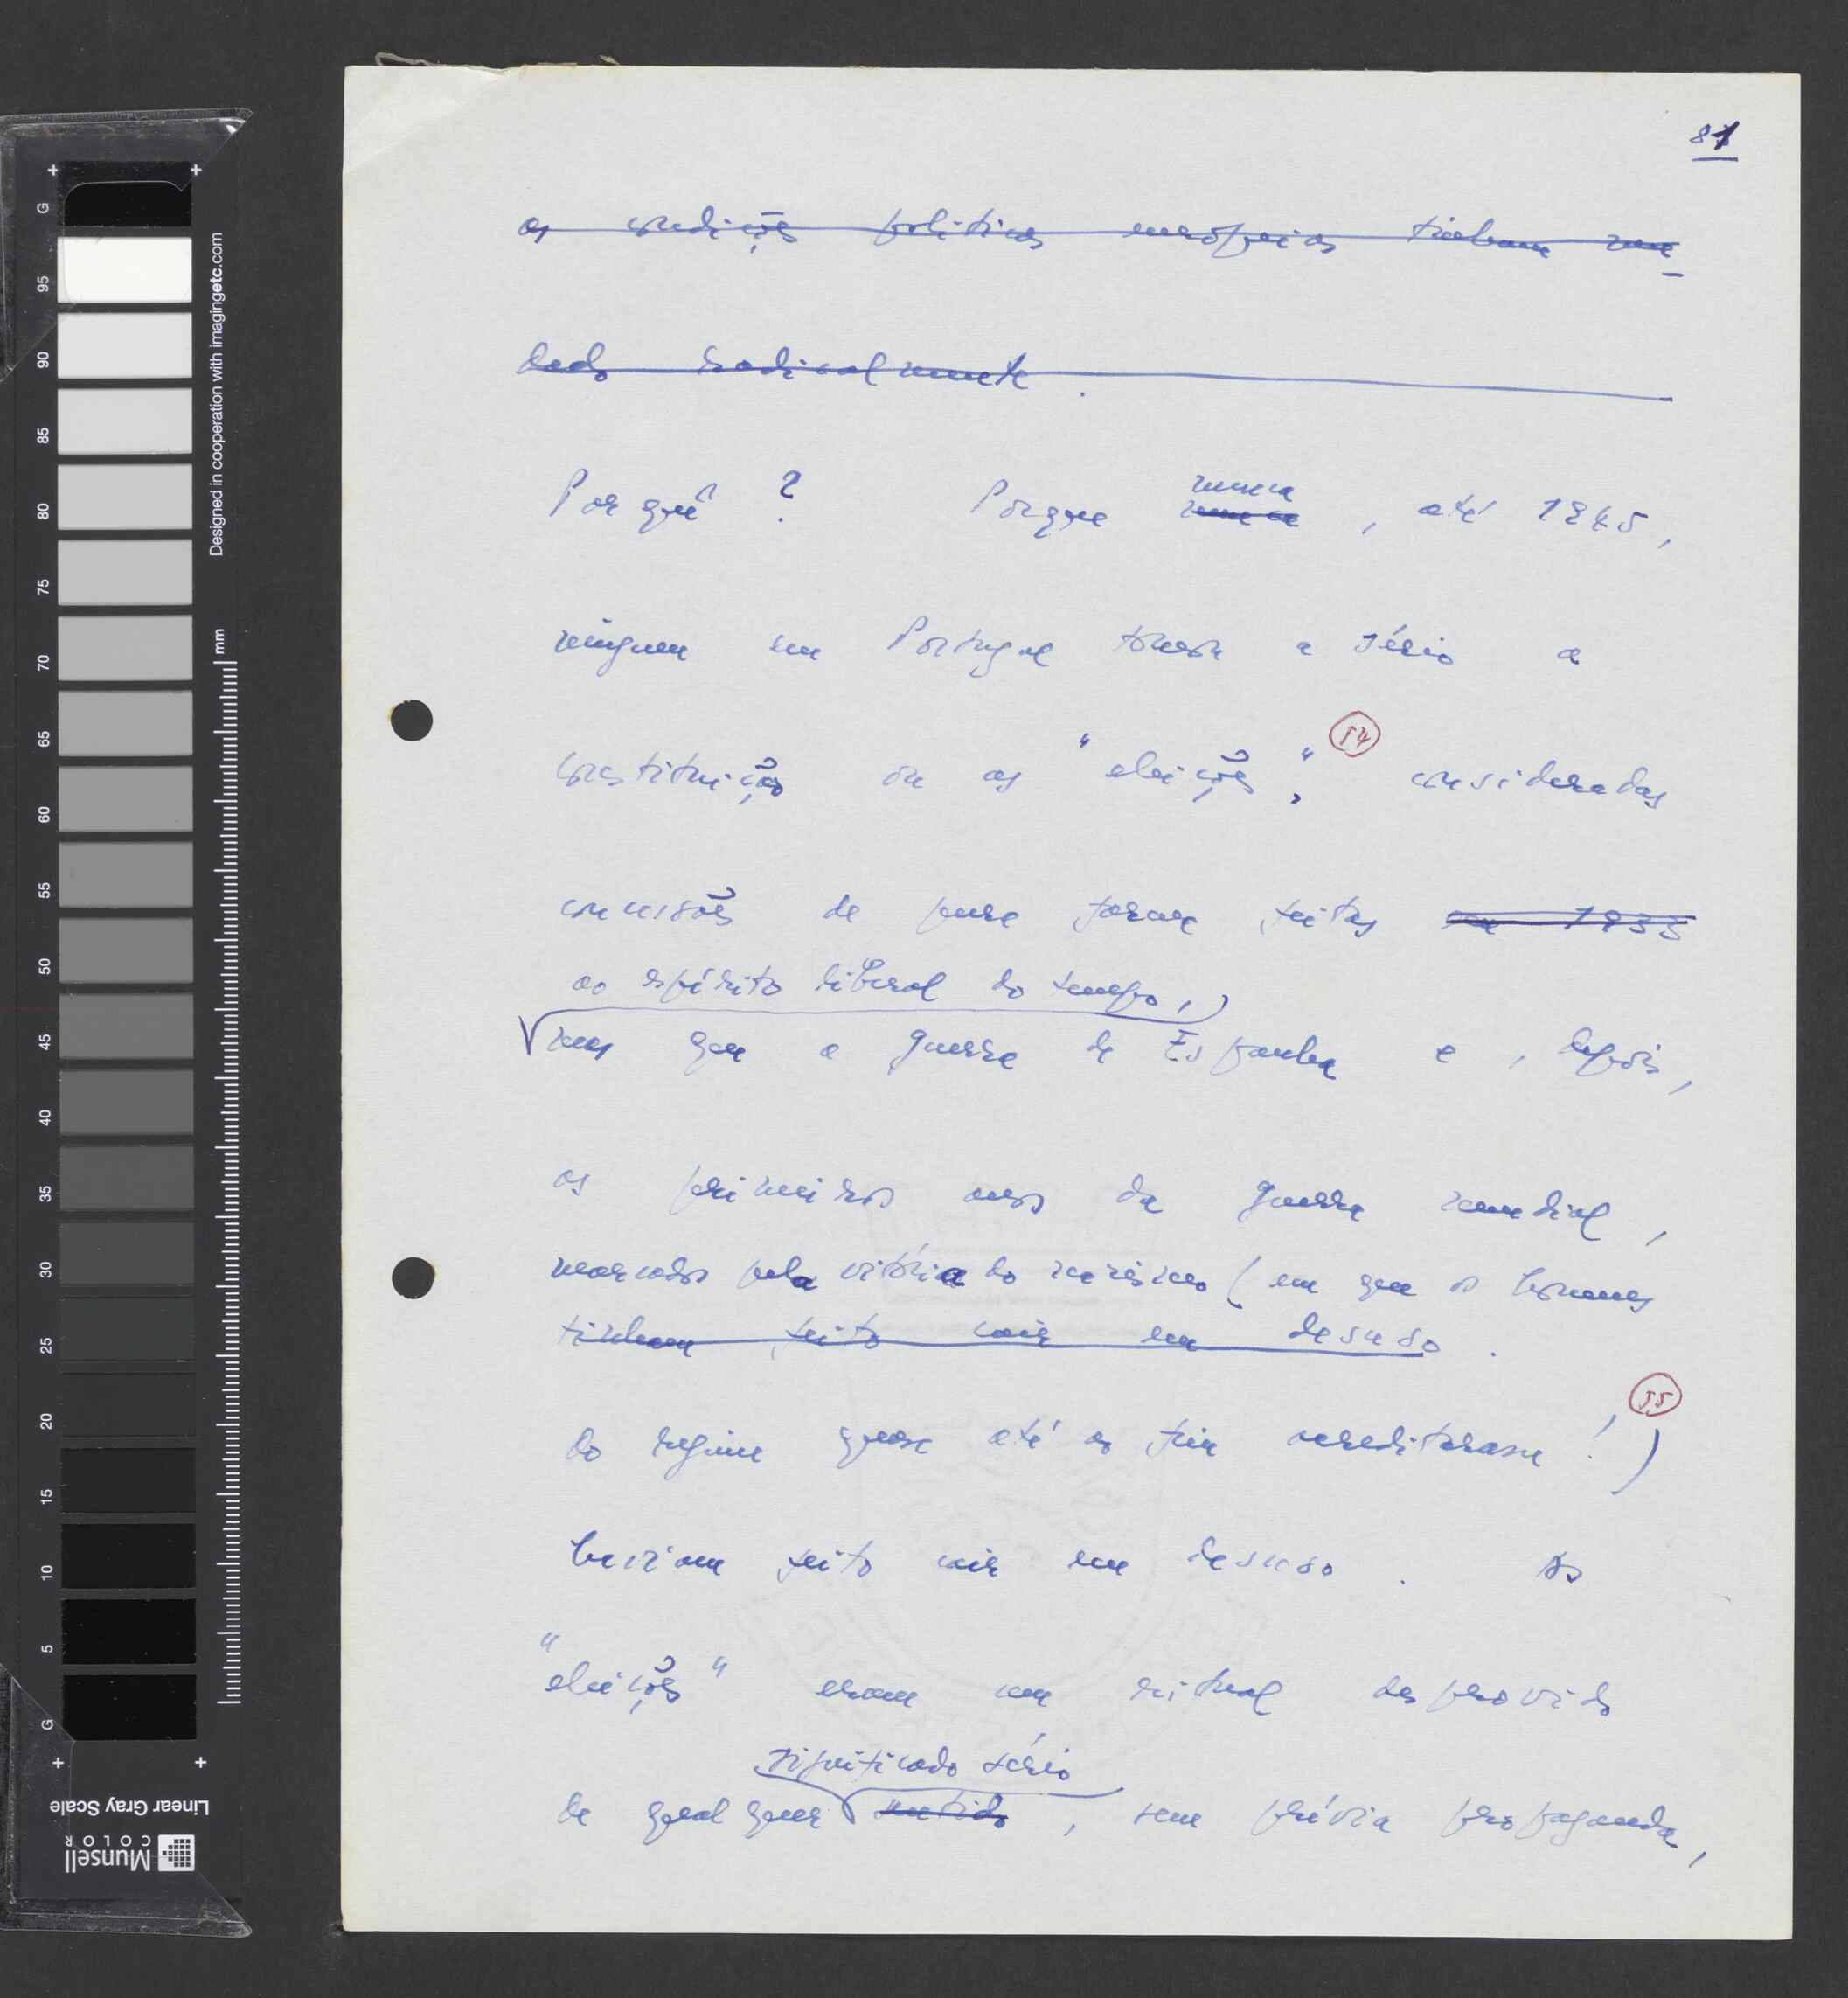 81
as condições políticas européias tinham mu-
dado radicalmente.
Por quê? Porque nunca nunca, até 1945,
ninguem em Portugal tomara a sério a
constituição ou as "eleições", 54 consideradas
concessões de pura forma feitas em 1933
ao espírito liberal do tempo,
mas que a guerra de Espanha e, depois,
os primeiros anos da guerra mundial,
marcados pela vitória do nazismo (em que os homens
tinham feito cair em desuso.
do regime quase até ao fim acreditaram!) 55
haviam feito cair em desuso. As
"eleições" eram um ritual desprovido
significado sério
de qualquer sentido, sem prévia propaganda,
G
95
90
85
80
75
70
65
60
55
50
45
40
35
30
25
20
15
10
5
G
Designed in cooperation with imagingetc.com
mm
Linear Gray Scale
Munsell
COLOR